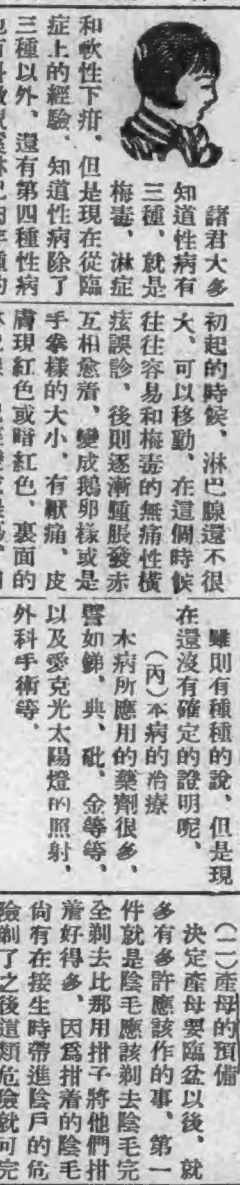 諸君大多
知道性病有
三種、就是
梅毒、淋症
和軟性下疳、但是現在從臨
症上的經驗、知道性病除了
三種以外、還有第四種性病
初起的時候、淋巴腺還不很
大、可以移動、在這個時候
往往容易和梅毒的無痛性橫
痃誤診、後則逐漸腫脹發赤
互相愈着、變成鵝卵樣或是
手拳樣的大小、有壓痛、皮
膚現紅色或暗紅色、裏面的
雖則有種種的說、但是現
在還沒有確定的證明呢、
(丙)本病的冶療
本病所應用的藥劑很多、
譬如銻、典、砒、金等等、
以及愛克光太陽燈的照射、
外科手術等、
(二)產母的預備
決定產母要臨盆以後、就
多有多許應該作的事、第一
件就是陰毛應該剃去陰毛完
全剃去比那用拑子將他們拑
着好得多、因爲拑着的陰毛
尙有在接生時帶進陰戶的危
險剃了之後這類危險就可完